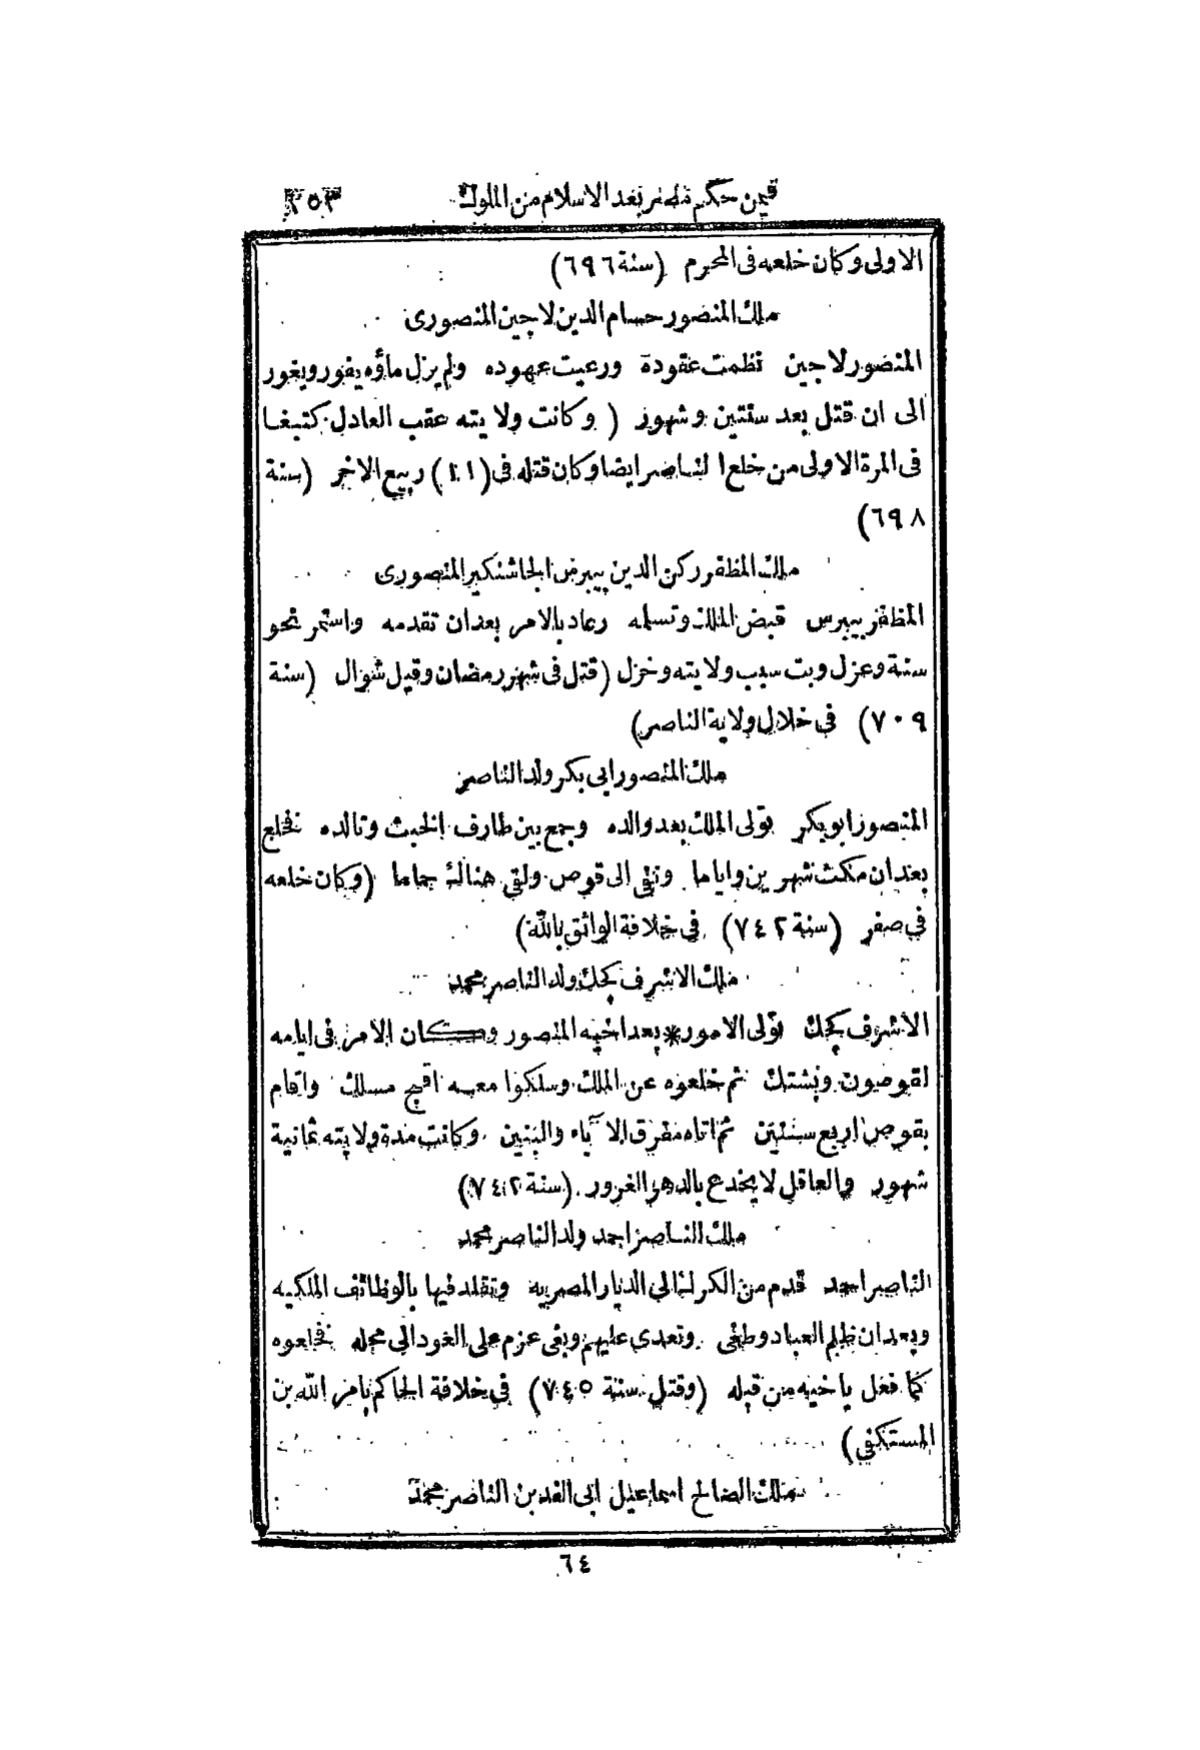 فيمن حكم مصر بعد الاسلام من الملوك ٣٥٣
الاولى وكان خلعه فى المحرم (سنة ٦٩٦)
ملك المنصور حسام الدين لاجين المنصورى
المنصور لاجين نظمت عقوده ورعيت عهوده ولم يزل ماؤه يفور ويغور
الى ان قتل بعد سنتين وشهور (وكانت ولايته عقب العادل كتبغا
فى المرة الاولى من خلع الناصر ايضا وكان قتله فى (٢١) ربيع الاخر (سنة
٦٩٨)
ملك المظفر ركن الدين بيبرس الجاشنكير المنصورى
المظفر بيبرس قبض الملك وتسلمه وعاد بالامر بعد ان تقدمه واستمر نحو
سنة وعزل وبت سبب ولايته وخزل (قتل فى شهر رمضان وقيل شوال (سنة
٧٠٩) فى خلال ولاية الناصر)
ملك المنصور ابى بكر ولد الناصر
المنصور ابو بكر تولى الملك بعد والده وجمع بين طارف الخبث وتالده فخلع
بعد ان مكث شهرين واياما ونفى الى قوص ولقى هنالك حماما (وكان خلعه
في صفر (سنة ٧٤٢) فى خلافة الواثق بالله)
ملك الاشرف كجك ولد الناصر محمد
الاشرف كجك تولى الامور * بعد اخيه المنصور وكان الامر فى ايامه
لقوصون وبشتك ثم خلعوه عن الملك وسلكوا معه اقبح مسلك واقام
بقوص اربع سنين ثم اتاه مفرق الآباء والبنين وكانت مدة ولايته ثمانية
شهور والعاقل لا يخدع بالدهر الغرور (سنة ٧٤٢)
ملك الناصر احمد ولد الناصر محمد
الناصر احمد قدم من الكرك الى الديار المصريه وتقلد فيها بالوظائف الملكيه
وبعد ان ظلم العباد وطغى وتعدى عليهم وبغى عزم على العود الى محله فخلعوه
كما فعل باخيه من قبله (وقتل سنة ٧٤٥) في خلافة الحاكم بامر الله بن
المستكفي)
ملك الصالح اسماعيل ابى الفد بن الناصر محمد
٦٤